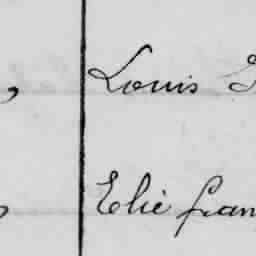 , Louis
, Elie fran